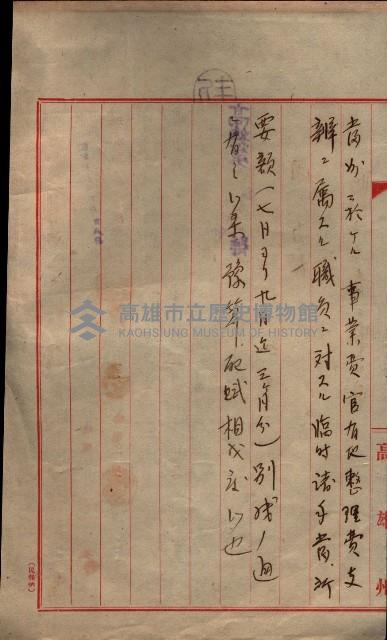 當州ニ於ケル事業費官有地整理費支
辨ニ屬スル職員ニ対スル臨時諸手當所
要額(七月ヨリ九月迄三ヶ月分)別残ノ通
ニ有之候条豫算配賦相成度候也
高雄州
高雄市立歷史博物館
KAOHSIUNG MUSEUM OF HISTORY